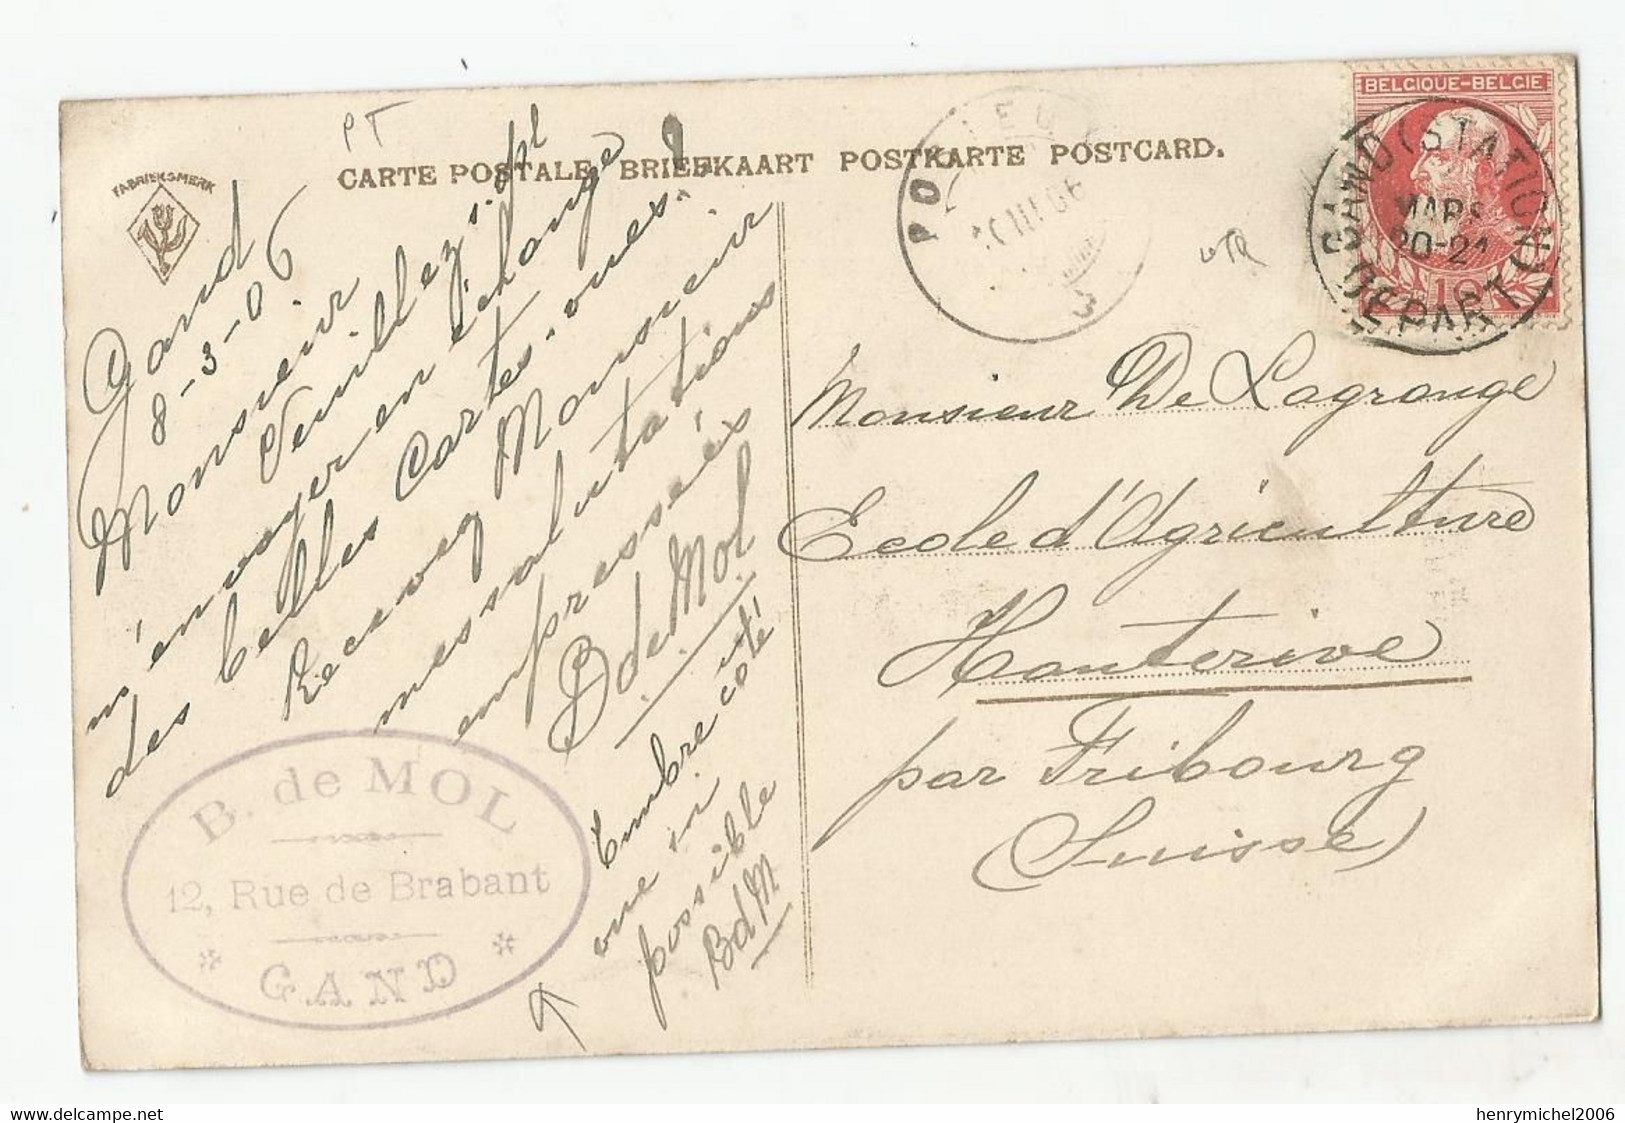 PT
CARTE POSTALE BRIEFKAART POSTKARTE POSTCARD.
FABRIEKSMERK
BELGIQUE-BELGIE
10
GAND (STATION)
MARS
20-21
DEPART
10 III 06
3
Gand
8-3-06
Monsieur
Veuillez s. pl
m'envoyer en échange
des belles Cartes-vues!
Recevez Monsieur
mes salutations
empressées
B de Mol
Timbre côté
vue si
possible
BdM
B. de MOL
12, Rue de Brabant
GAND
Monsieur De Lagrange
Ecole d'Agriculture
Hauterive
par Fribourg
(Suisse)
henrymichel2006